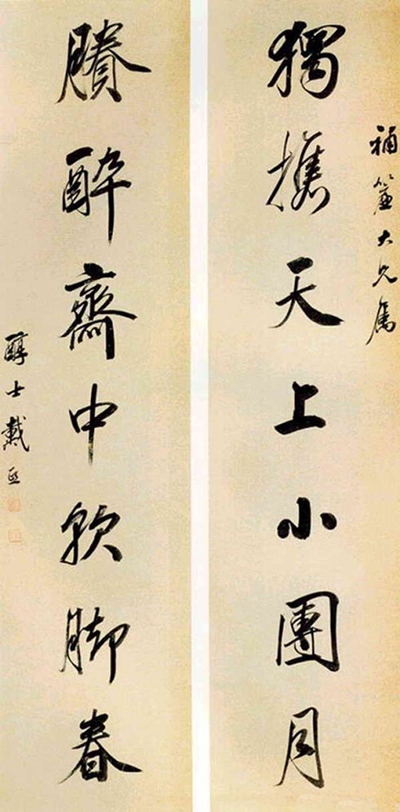 補大兄属
獨攜天上小團月
賸醉齋中軟脚春
醇士戴熙